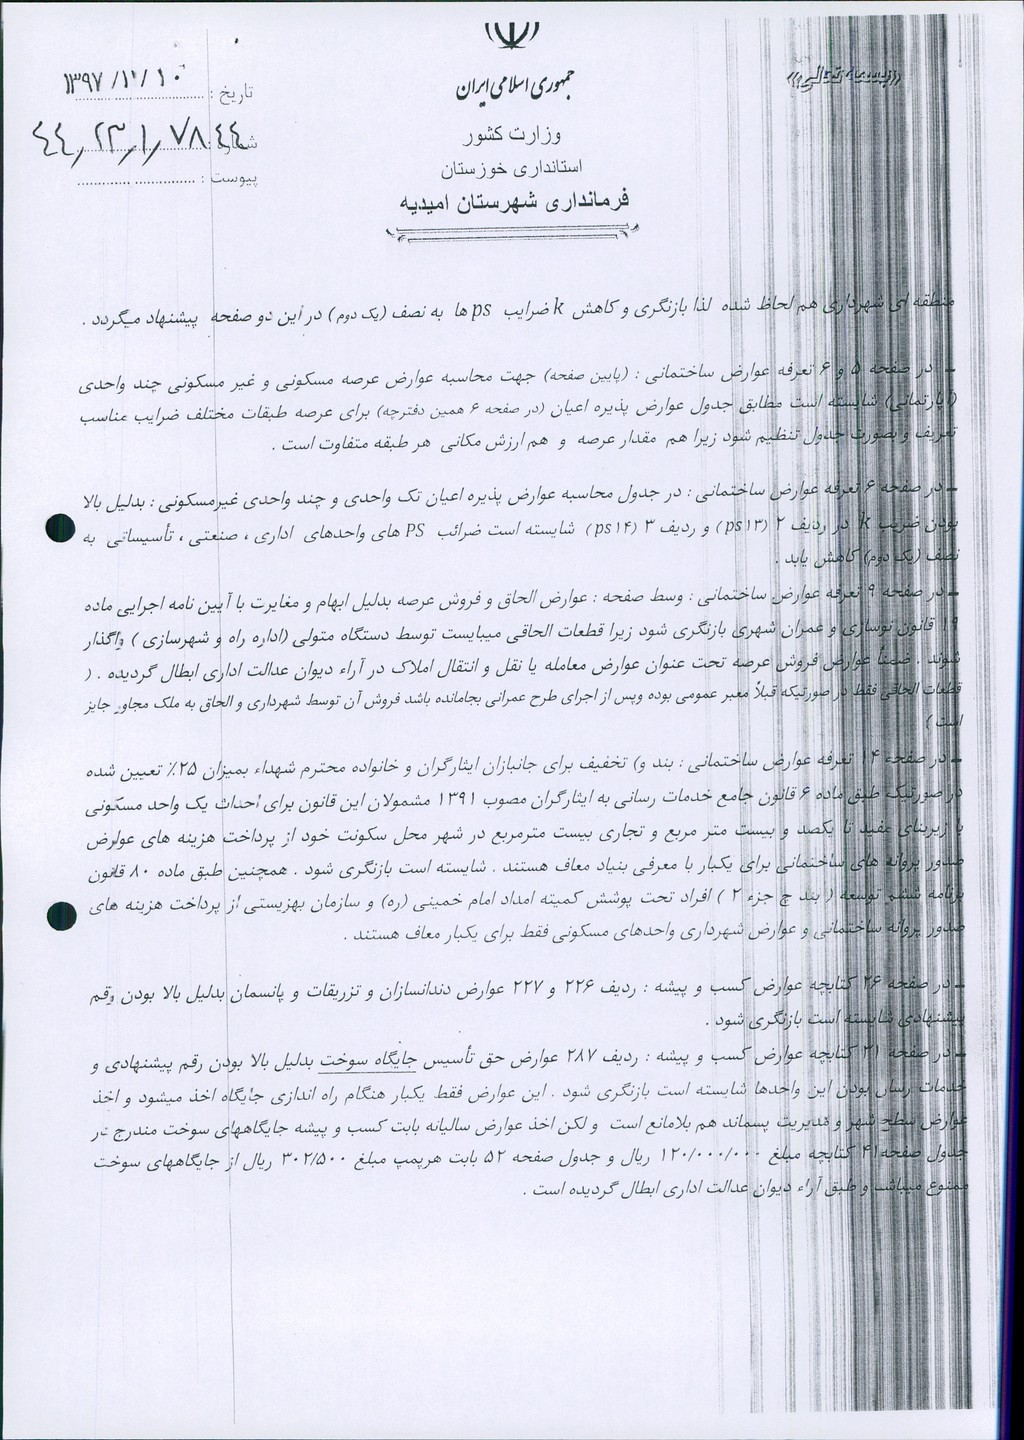 «بسمه تعالی»
جمهوری اسلامی ایران
وزارت کشور
استانداری خوزستان
فرمانداری شهرستان امیدیه
تاریخ : ۱۳۹۷/۱۱/۱۰
شماره ۴۴,۲۳,۱,۷۸۴۴
پیوست :
منطقه ای شهرداری هم لحاظ شده لذا بازنگری و کاهش k ضرایب ps ها به نصف (یک دوم) در این دو صفحه پیشنهاد میگردد .
ـ در صفحه ۵ و ۶ تعرفه عوارض ساختمانی : (پایین صفحه) جهت محاسبه عوارض عرصه مسکونی و غیر مسکونی چند واحدی
(آپارتمانی) شایسته است مطابق جدول عوارض پذیره اعیان (در صفحه ۶ همین دفترچه) برای عرصه طبقات مختلف ضرایب مناسب
تعریف و بصورت جدول تنظیم شود زیرا هم مقدار عرصه و هم ارزش مکانی هر طبقه متفاوت است .
ـ در صفحه ۶ تعرفه عوارض ساختمانی : در جدول محاسبه عوارض پذیره اعیان تک واحدی و چند واحدی غیرمسکونی : بدلیل بالا
بودن ضریب k در ردیف ۲ (ps۱۳) و ردیف ۳ (ps۱۴) شایسته است ضرائب PS های واحدهای اداری ، صنعتی ، تأسیساتی به
نصف (یک دوم) کاهش یابد .
ـ در صفحه ۹ تعرفه عوارض ساختمانی : وسط صفحه : عوارض الحاق و فروش عرصه بدلیل ابهام و مغایرت با آیین نامه اجرایی ماده
۱۹ قانون نوسازی و عمران شهری بازنگری شود زیرا قطعات الحاقی میبایست توسط دستگاه متولی (اداره راه و شهرسازی ) واگذار
شوند . ضمناً عوارض فروش عرصه تحت عنوان عوارض معامله یا نقل و انتقال املاک در آراء دیوان عدالت اداری ابطال گردیده . (
قطعات الحاقی فقط در صورتیکه قبلاً معبر عمومی بوده وپس از اجرای طرح عمرانی بجامانده باشد فروش آن توسط شهرداری و الحاق به ملک مجاور جایز
است )
ـ در صفحه ۱۴ تعرفه عوارض ساختمانی : بند و) تخفیف برای جانبازان ایثارگران و خانواده محترم شهداء بمیزان ۲۵٪ تعیین شده
در صورتیکه طبق ماده ۶ قانون جامع خدمات رسانی به ایثارگران مصوب ۱۳۹۱ مشمولان این قانون برای احداث یک واحد مسکونی
با زیربنای مفید تا یکصد و بیست متر مربع و تجاری بیست مترمربع در شهر محل سکونت خود از پرداخت هزینه های عوارض
صدور پروانه های ساختمانی برای یکبار با معرفی بنیاد معاف هستند . شایسته است بازنگری شود . همچنین طبق ماده ۸۰ قانون
برنامه ششم توسعه ( بند چ جزء ۲ ) افراد تحت پوشش کمیته امداد امام خمینی (ره) و سازمان بهزیستی از پرداخت هزینه های
صدور پروانه ساختمانی و عوارض شهرداری واحدهای مسکونی فقط برای یکبار معاف هستند .
ـ در صفحه ۲۶ کتابچه عوارض کسب و پیشه : ردیف ۲۲۶ و ۲۲۷ عوارض دندانسازان و تزریقات و پانسمان بدلیل بالا بودن رقم
پیشنهادی شایسته است بازنگری شود .
ـ در صفحه ۳۱ کتابچه عوارض کسب و پیشه : ردیف ۲۸۷ عوارض حق تأسیس جایگاه سوخت بدلیل بالا بودن رقم پیشنهادی و
خدمات رسان بودن این واحدها شایسته است بازنگری شود . این عوارض فقط یکبار هنگام راه اندازی جایگاه اخذ میشود و اخذ
عوارض سطح شهر و مدیریت پسماند هم بلامانع است و لکن اخذ عوارض سالیانه بابت کسب و پیشه جایگاههای سوخت مندرج در
جدول صفحه۴۱ کتابچه مبلغ ۱۲۰/۰۰۰/۰۰۰ ریال و جدول صفحه ۵۲ بابت هرپمپ مبلغ ۳۰۲/۵۰۰ ریال از جایگاههای سوخت
ممنوع میباشد و طبق آراء دیوان عدالت اداری ابطال گردیده است .